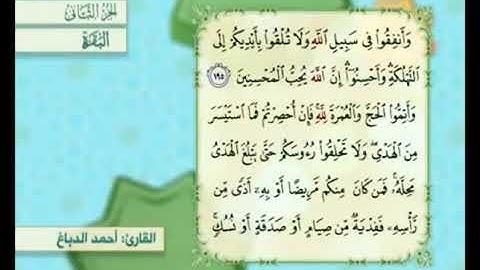 الجزء الثاني
البقرة
وَأَنفِقُوا۟ فِى سَبِيلِ ٱللَّهِ وَلَا تُلْقُوا۟ بِأَيْدِيكُمْ إِلَى
ٱلتَّهْلُكَةِ ۛ وَأَحْسِنُوٓا۟ ۛ إِنَّ ٱللَّهَ يُحِبُّ ٱلْمُحْسِنِينَ ١٩٥
وَأَتِمُّوا۟ ٱلْحَجَّ وَٱلْعُمْرَةَ لِلَّهِ ۚ فَإِنْ أُحْصِرْتُمْ فَمَا ٱسْتَيْسَرَ
مِنَ ٱلْهَدْىِ ۖ وَلَا تَحْلِقُوا۟ رُءُوسَكُمْ حَتَّىٰ يَبْلُغَ ٱلْهَدْىُ
مَحِلَّهُۥ ۚ فَمَن كَانَ مِنكُم مَّرِيضًا أَوْ بِهِۦٓ أَذًى مِّن
رَّأْسِهِۦ فَفِدْيَةٌ مِّن صِيَامٍ أَوْ صَدَقَةٍ أَوْ نُسُكٍ ۚ
القارئ: أحمد الدباغ